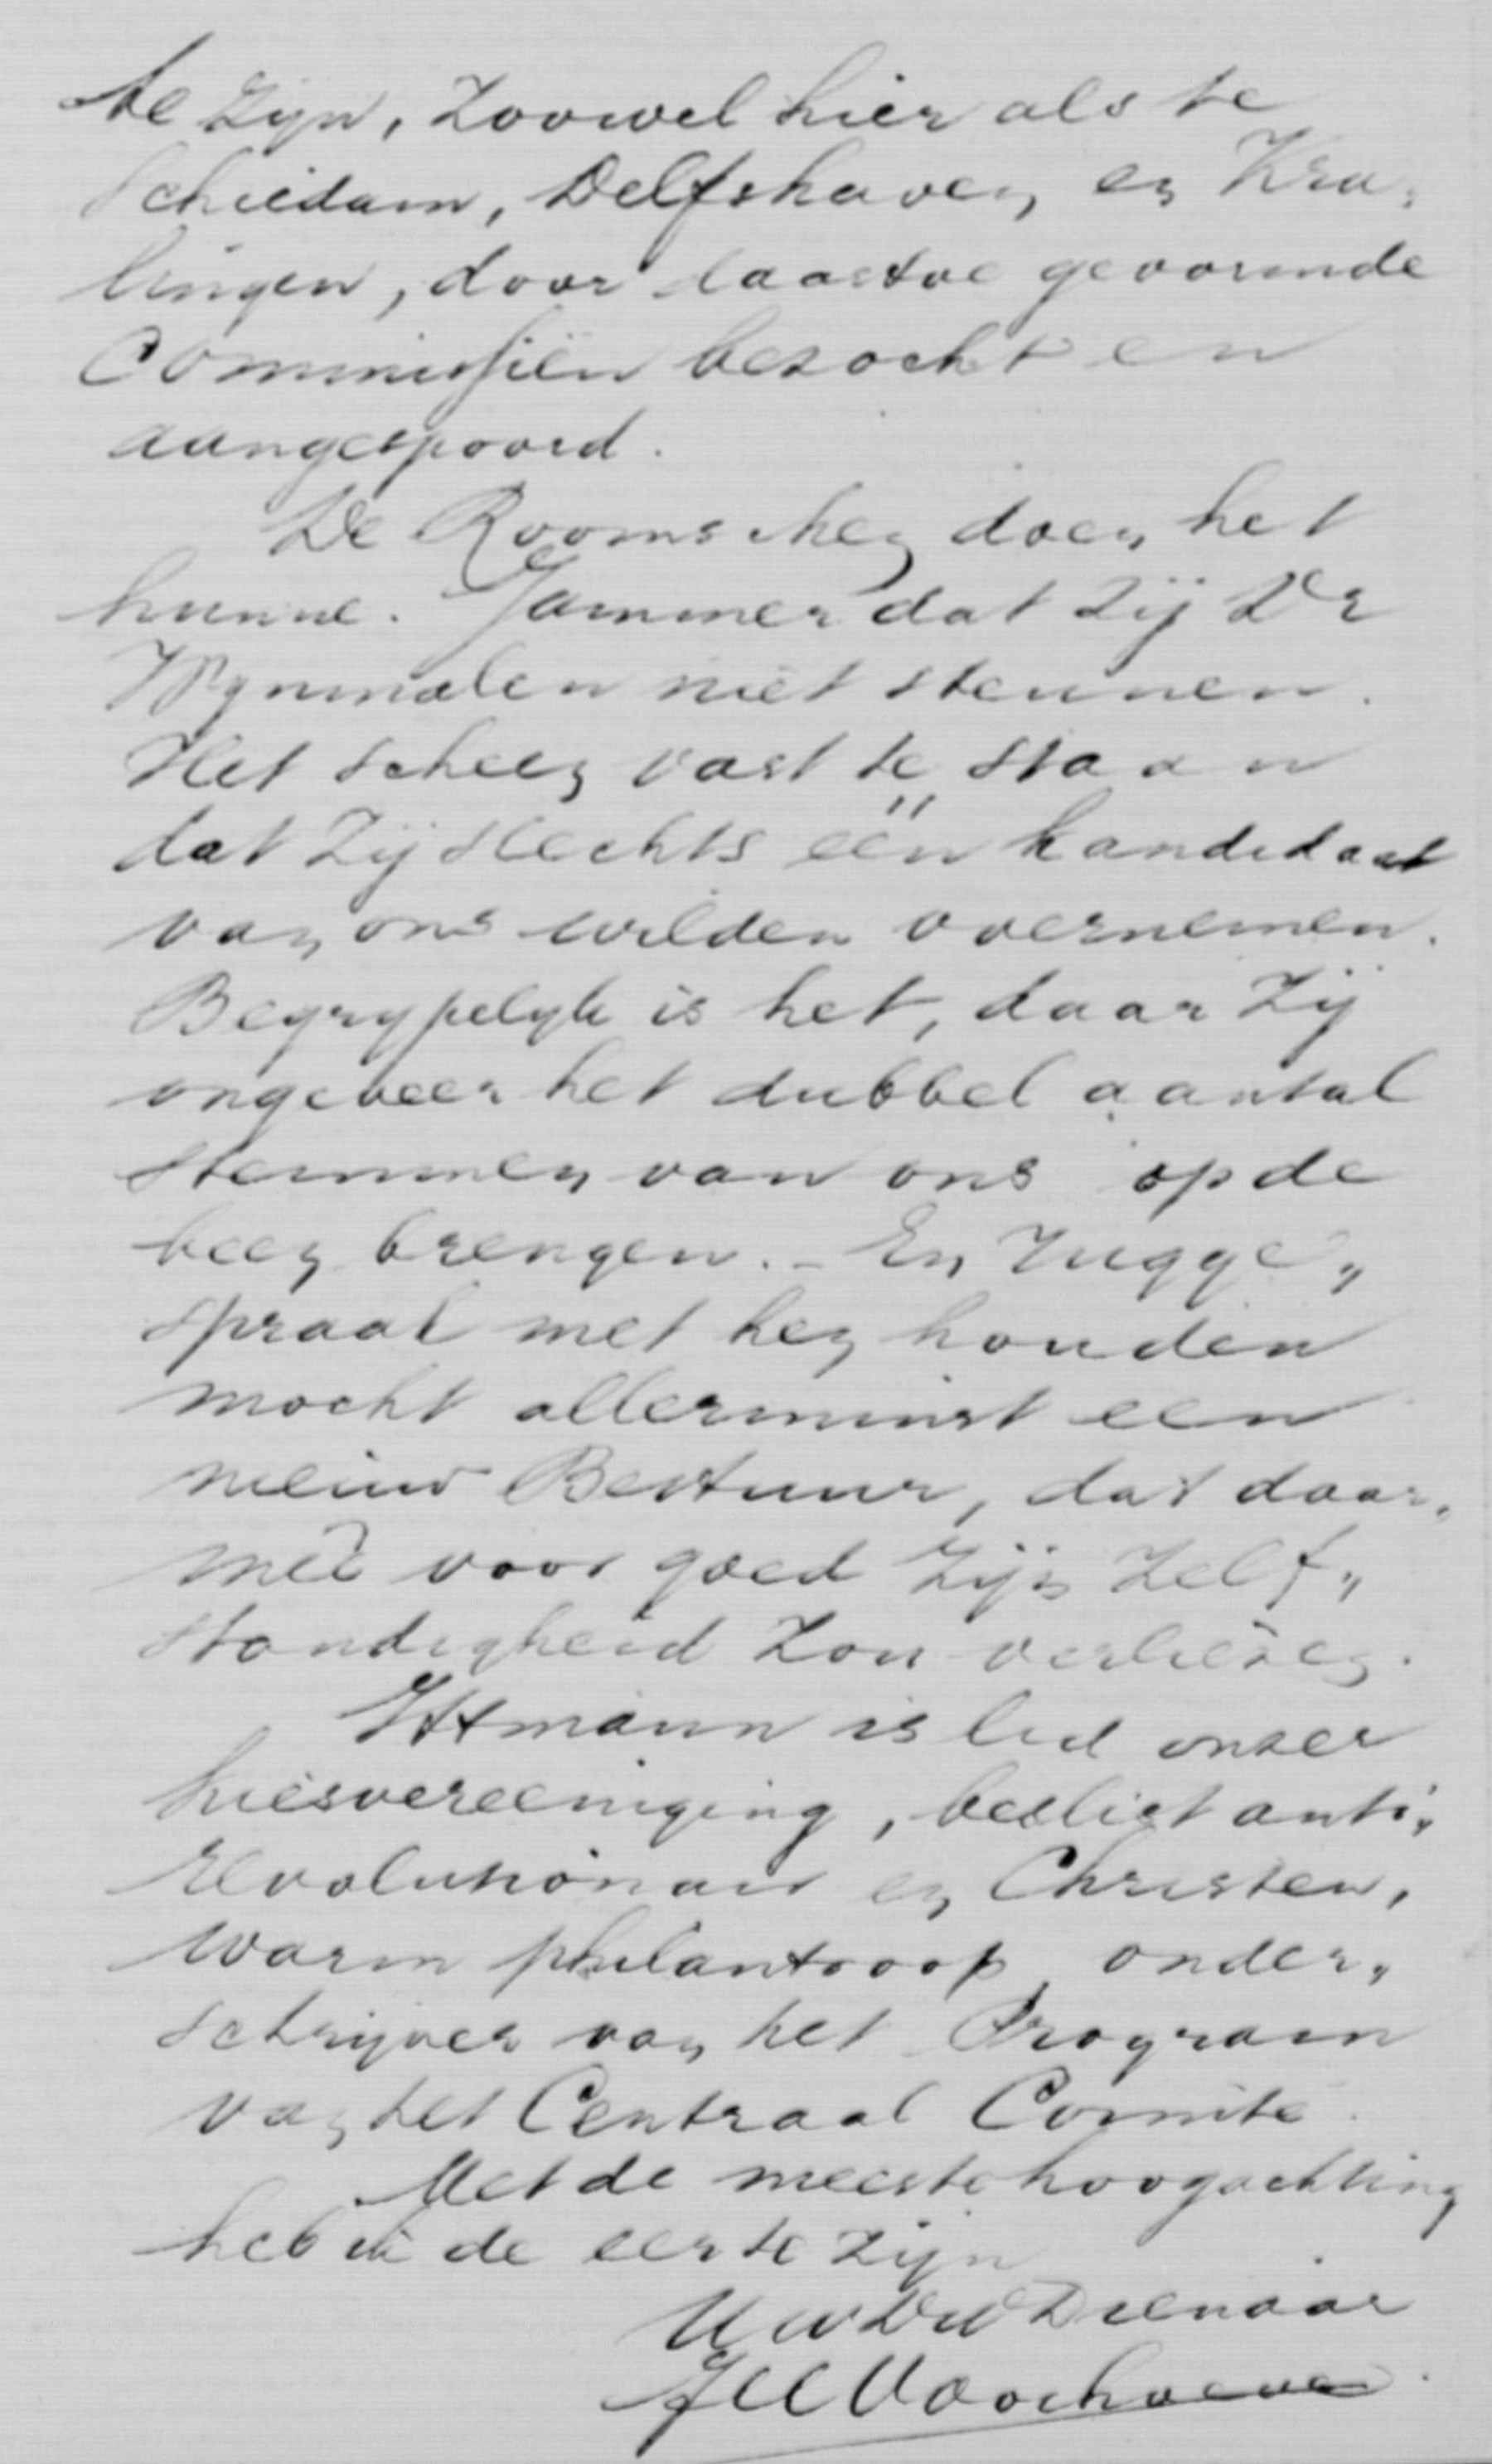 te zijn, zoowel hier als te
Schiedam, Delfshaven en Kra„
lingen, door daartoe gevormde
Commissiën bezocht en
aangespoord.
De Roomschen doen het
hunne. Jammer dat zij Dr
Wijnmalen niet steunen.
Het scheen vast te staan
dat zij slechts één kandidaat
van ons wilden overnemen.
Begrypelyk is het, daar zij
ongeveer het dubbel aantal
stemmen van ons op de
been brengen. - En ruggé„
spraak met hen houden
mocht allerminst een
nieuw Bestuur, dat daar„
meê voor goed zijn zelf„
standigheid zou verliezen.
Ittmann is lid onzer
kiesvereeniging, beslist anti„
revolutionair en Christen,
warm philantroop, onder„
schrijver van het Program
van het Centraal Comité.
Met de meeste hoogachting
heb ik de eer te zijn
Uw DW Dienaar
Voorhoeve